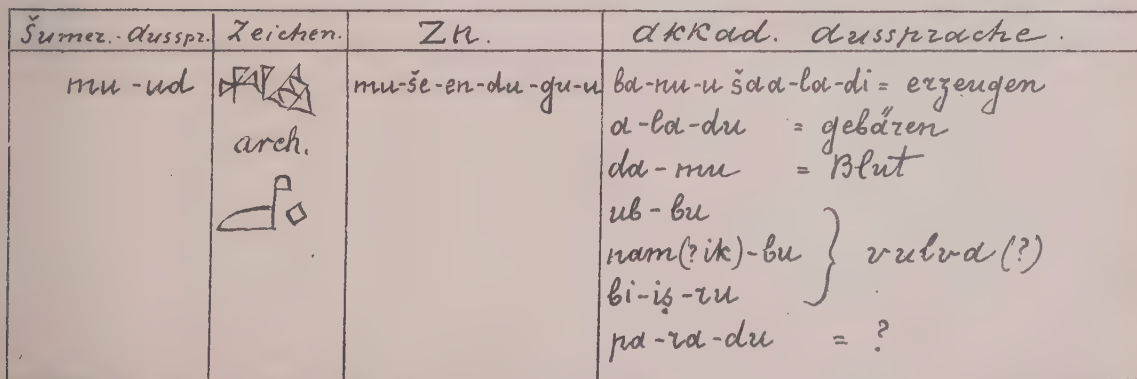 Šumer. Ausspr. Zeichen. ZN. akkad. Aussprache.
mu-ud mu-še-en-du-gu-u ba-nu-u ša a-la-di = erzeugen
arch. a-la-du = gebären
da-mu = Blut
ub-bu
nam(?ik)-bu } vulva (?)
bi-iṣ-ru
pa-ra-du = ?